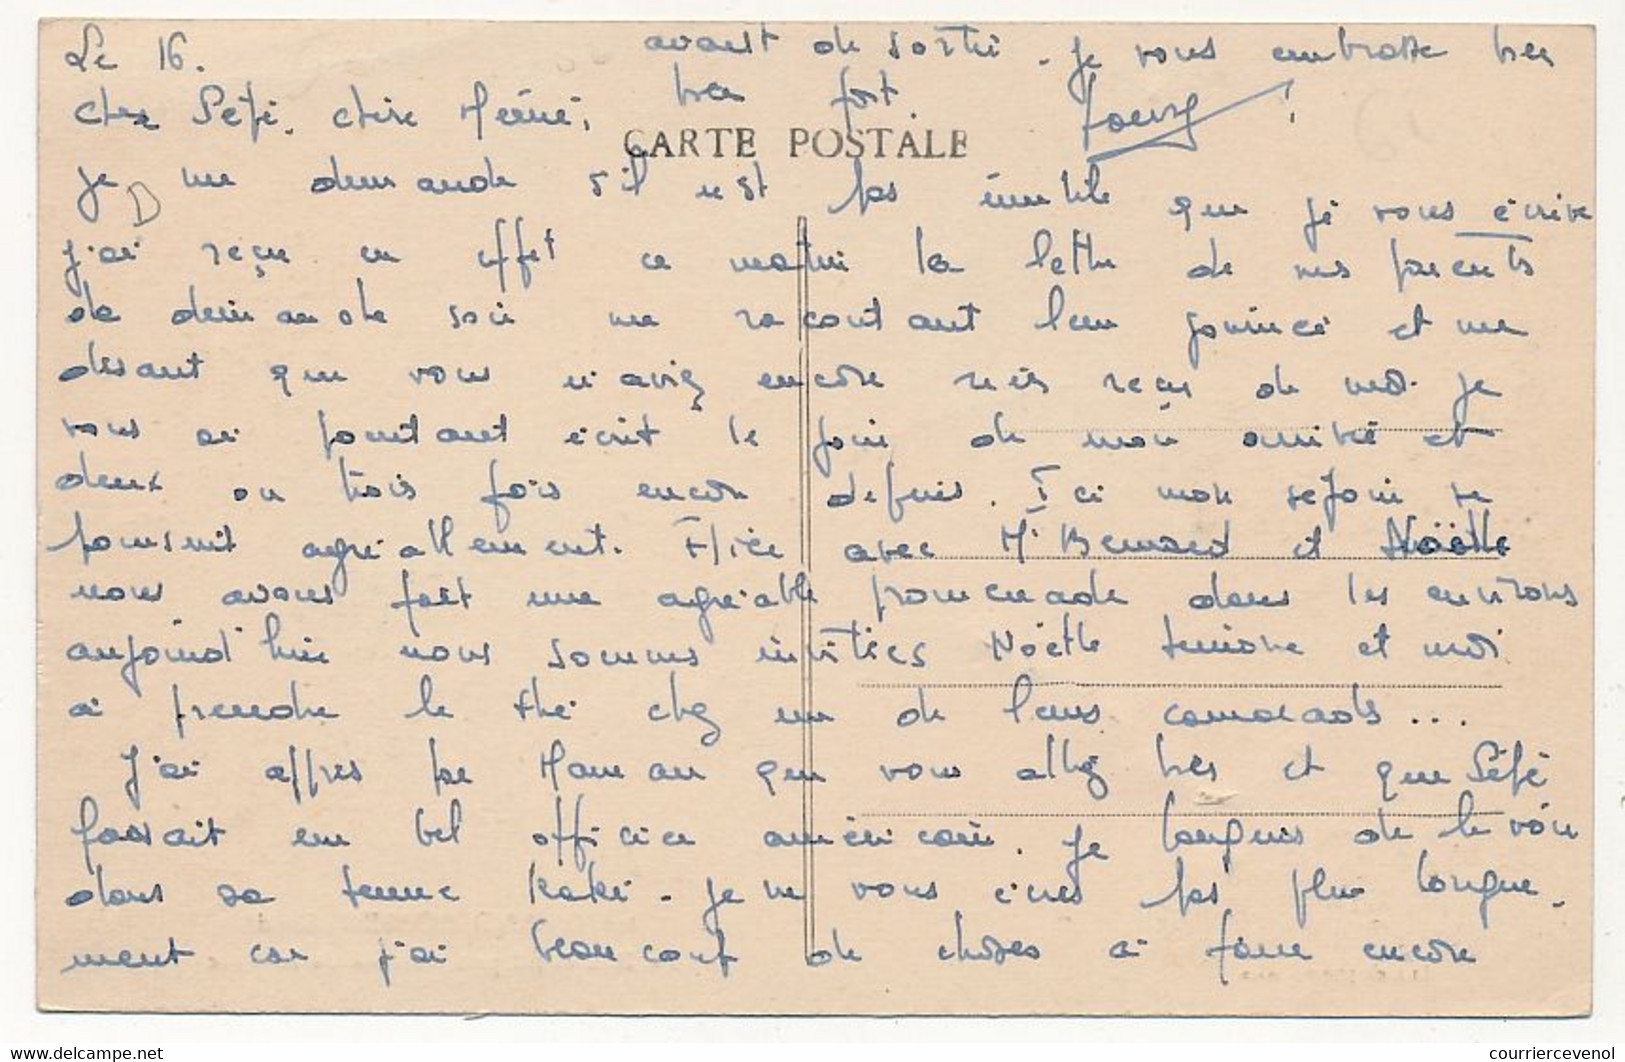 Le 16.
cher Pépé, chère Mémé,
CARTE POSTALE
je me demande s'il n'est pas inutile que je vous écrive
j'ai reçu en effet ce matin la lettre de mes parents
de dimanche soir me racontant leur journée et me
disant que vous n'aviez encore rien reçu de moi. Je
vous ai pourtant écrit le jour de mon arrivée et
deux ou trois fois encore depuis. Ici mon séjour se
poursuit agréablement. Hier avec Mr Bernard et Noëlle
nous avons fait une agréable promenade dans les environs
aujourd'hui nous sommes invitées Noëlle et moi
à prendre le thé chez un de leurs camarades...
J'ai appris par Maman que vous alliez bien et que Pépé
faisait un bel officier américain. Je languis de le voir
dans sa tenue kaki. Je ne vous écris pas plus longue-
ment car j'ai beaucoup de choses à faire encore
avant de sortir. Je vous embrasse bien
bien fort.